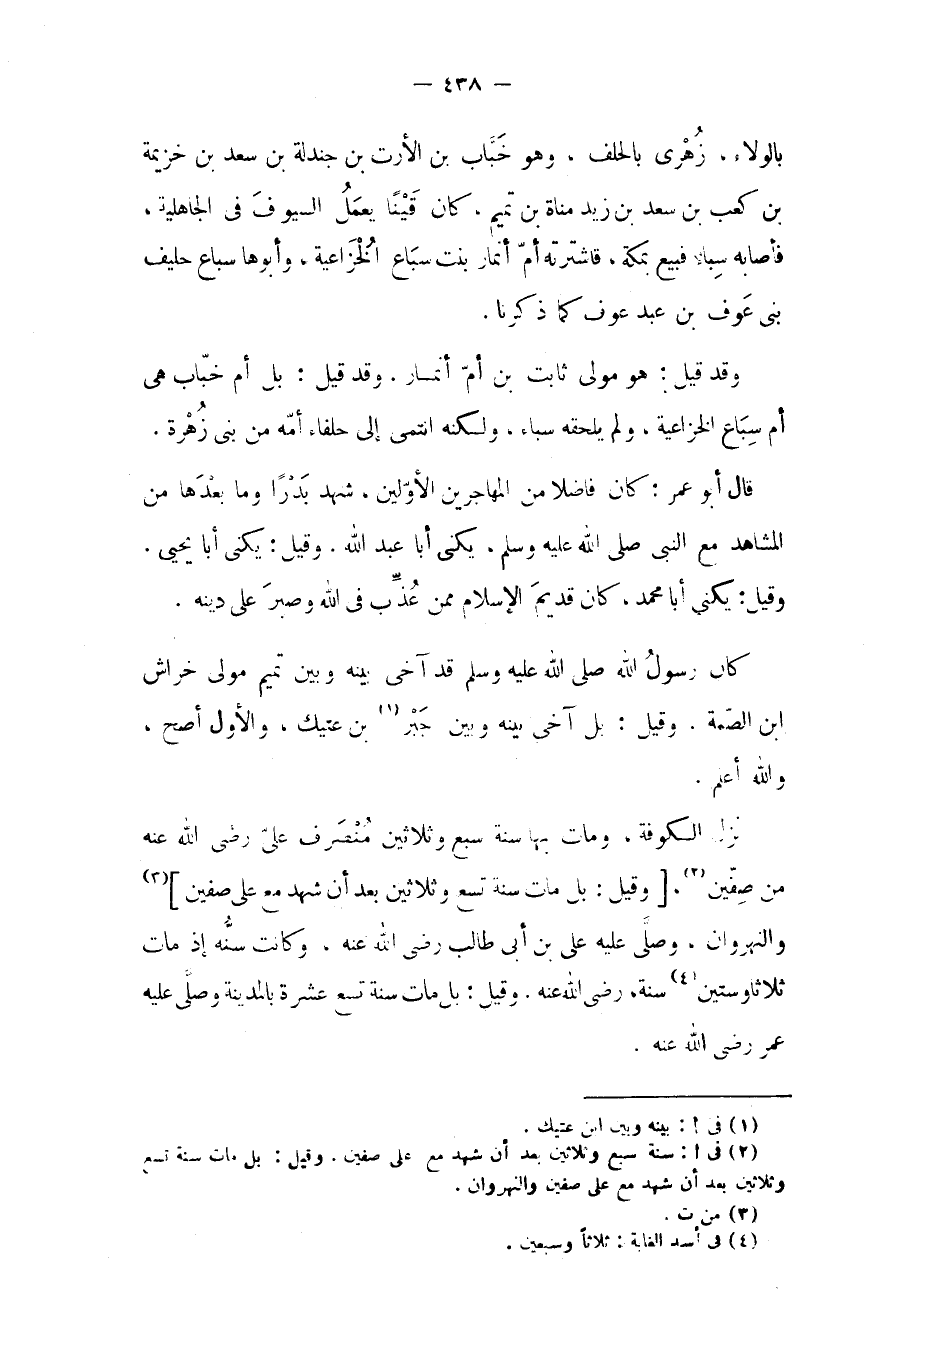 — ٤٣٨ —
بالولاء ، زُهْرى بالحلف ، وهو خَبَّاب بن الأرت بن جندلة بن سعد بن خزيمة
بن كعب بن سعد بن زيد مناة بن تميم ، كان قَيْنًا يعمَلُ السيوفَ فى الجاهلية ،
فأصابه سِباء فبيع بمكة ، فاشترته أمّ أنمار بنت سبَاع الْخُزَاعية ، وأبوها سباع حليف
بنى عَوف بن عبد عوف كما ذكرنا .
وقد قيل : هو مولى ثابت بن أمّ أنمـار . وقد قيل : بل أم خبّاب هى
أم سِبَاع الخزاعية ، ولم يلحقه سباء ، ولكنه انتمى إلى حلفاء أمّه من بنى زُهْرة .
قال أبو عمر : كان فاضلا من المهاجرين الأوّلين ، شهد بَدْرًا وما بعْدَها من
المشاهد مع النبى صلى الله عليه وسلم ، يكنى أبا عبد الله . وقيل : يكنى أبا يحيى .
وقيل : يكني أبا محمد ، كان قديمَ الإسلام ممن عُذِّب فى الله وصبرَ على دينه .
كان رسولُ الله صلى الله عليه وسلم قد آخى بينه وبين تميم مولى خراش
ابن الصّمة . وقيل : بل آخى بينه وبين جَبْر (١) بن عتيك ، والأول أصح ،
والله أعلم .
نزل الكوفة ، ومات بها سنة سبع وثلاثين مُنْصَرف علىّ رضى الله عنه
من صِفّين (٢) . [ وقيل : بل مات سنة تسع وثلاثين بعد أن شهد مع على صفين ] (٣)
والنهروان ، وصلَّى عليه على بن أبى طالب رضى الله عنه ، وكانت سنُّه إذ مات
ثلاثا وستين (٤) سنة، رضى الله عنه . وقيل : بل مات سنة تسع عشرة بالمدينة وصلَّى عليه
عمر رضى الله عنه .
(١) فى أ : بينه وبين ابن عتيك .
(٢) فى ا : سنة سبع وثلاثين بعد أن شهد مع على صفين . وقيل : بل مات سنة تسع
وثلاثين بعد أن شهد مع على صفين والنهروان .
(٣) من ت .
(٤) فى أسد الغابة : ثلاثاً وسبعين .